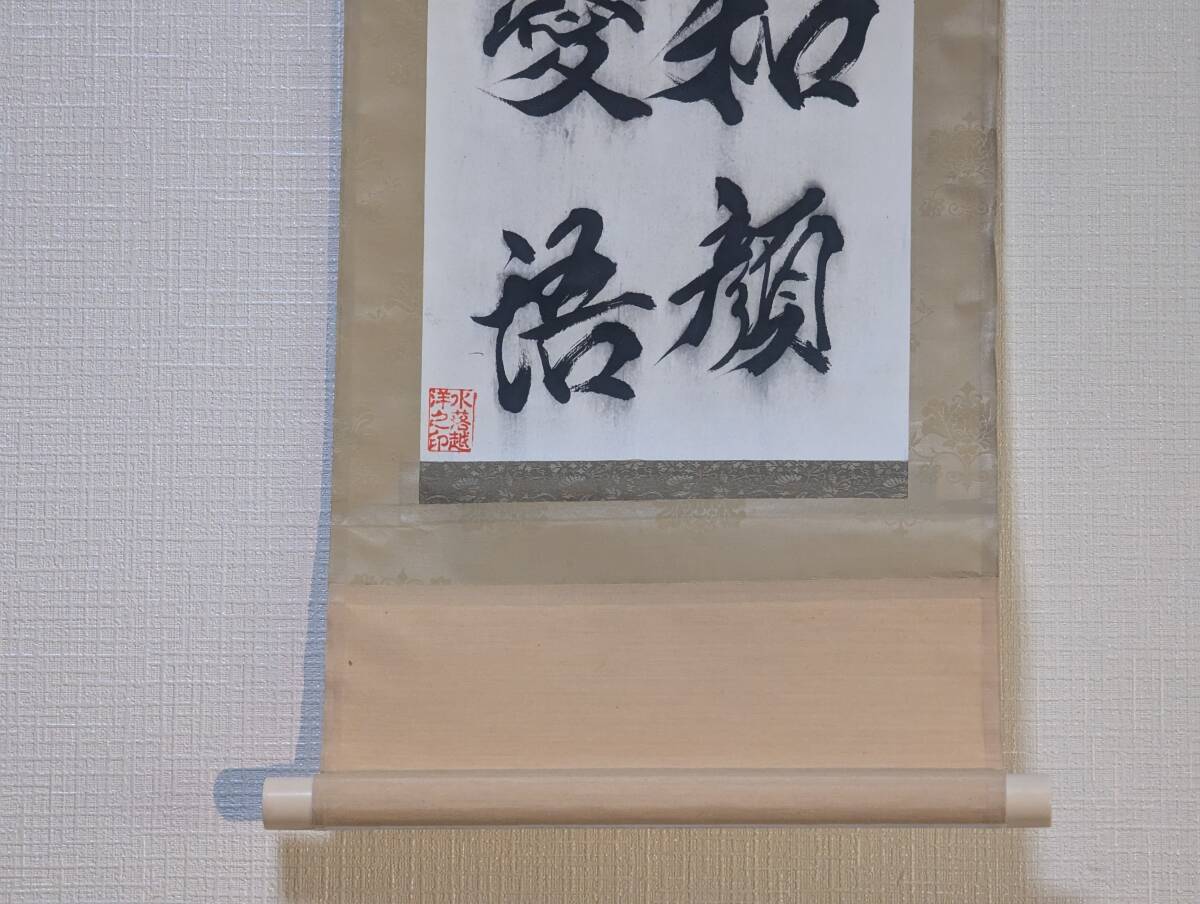 和顔
愛語
水落越
洋之印